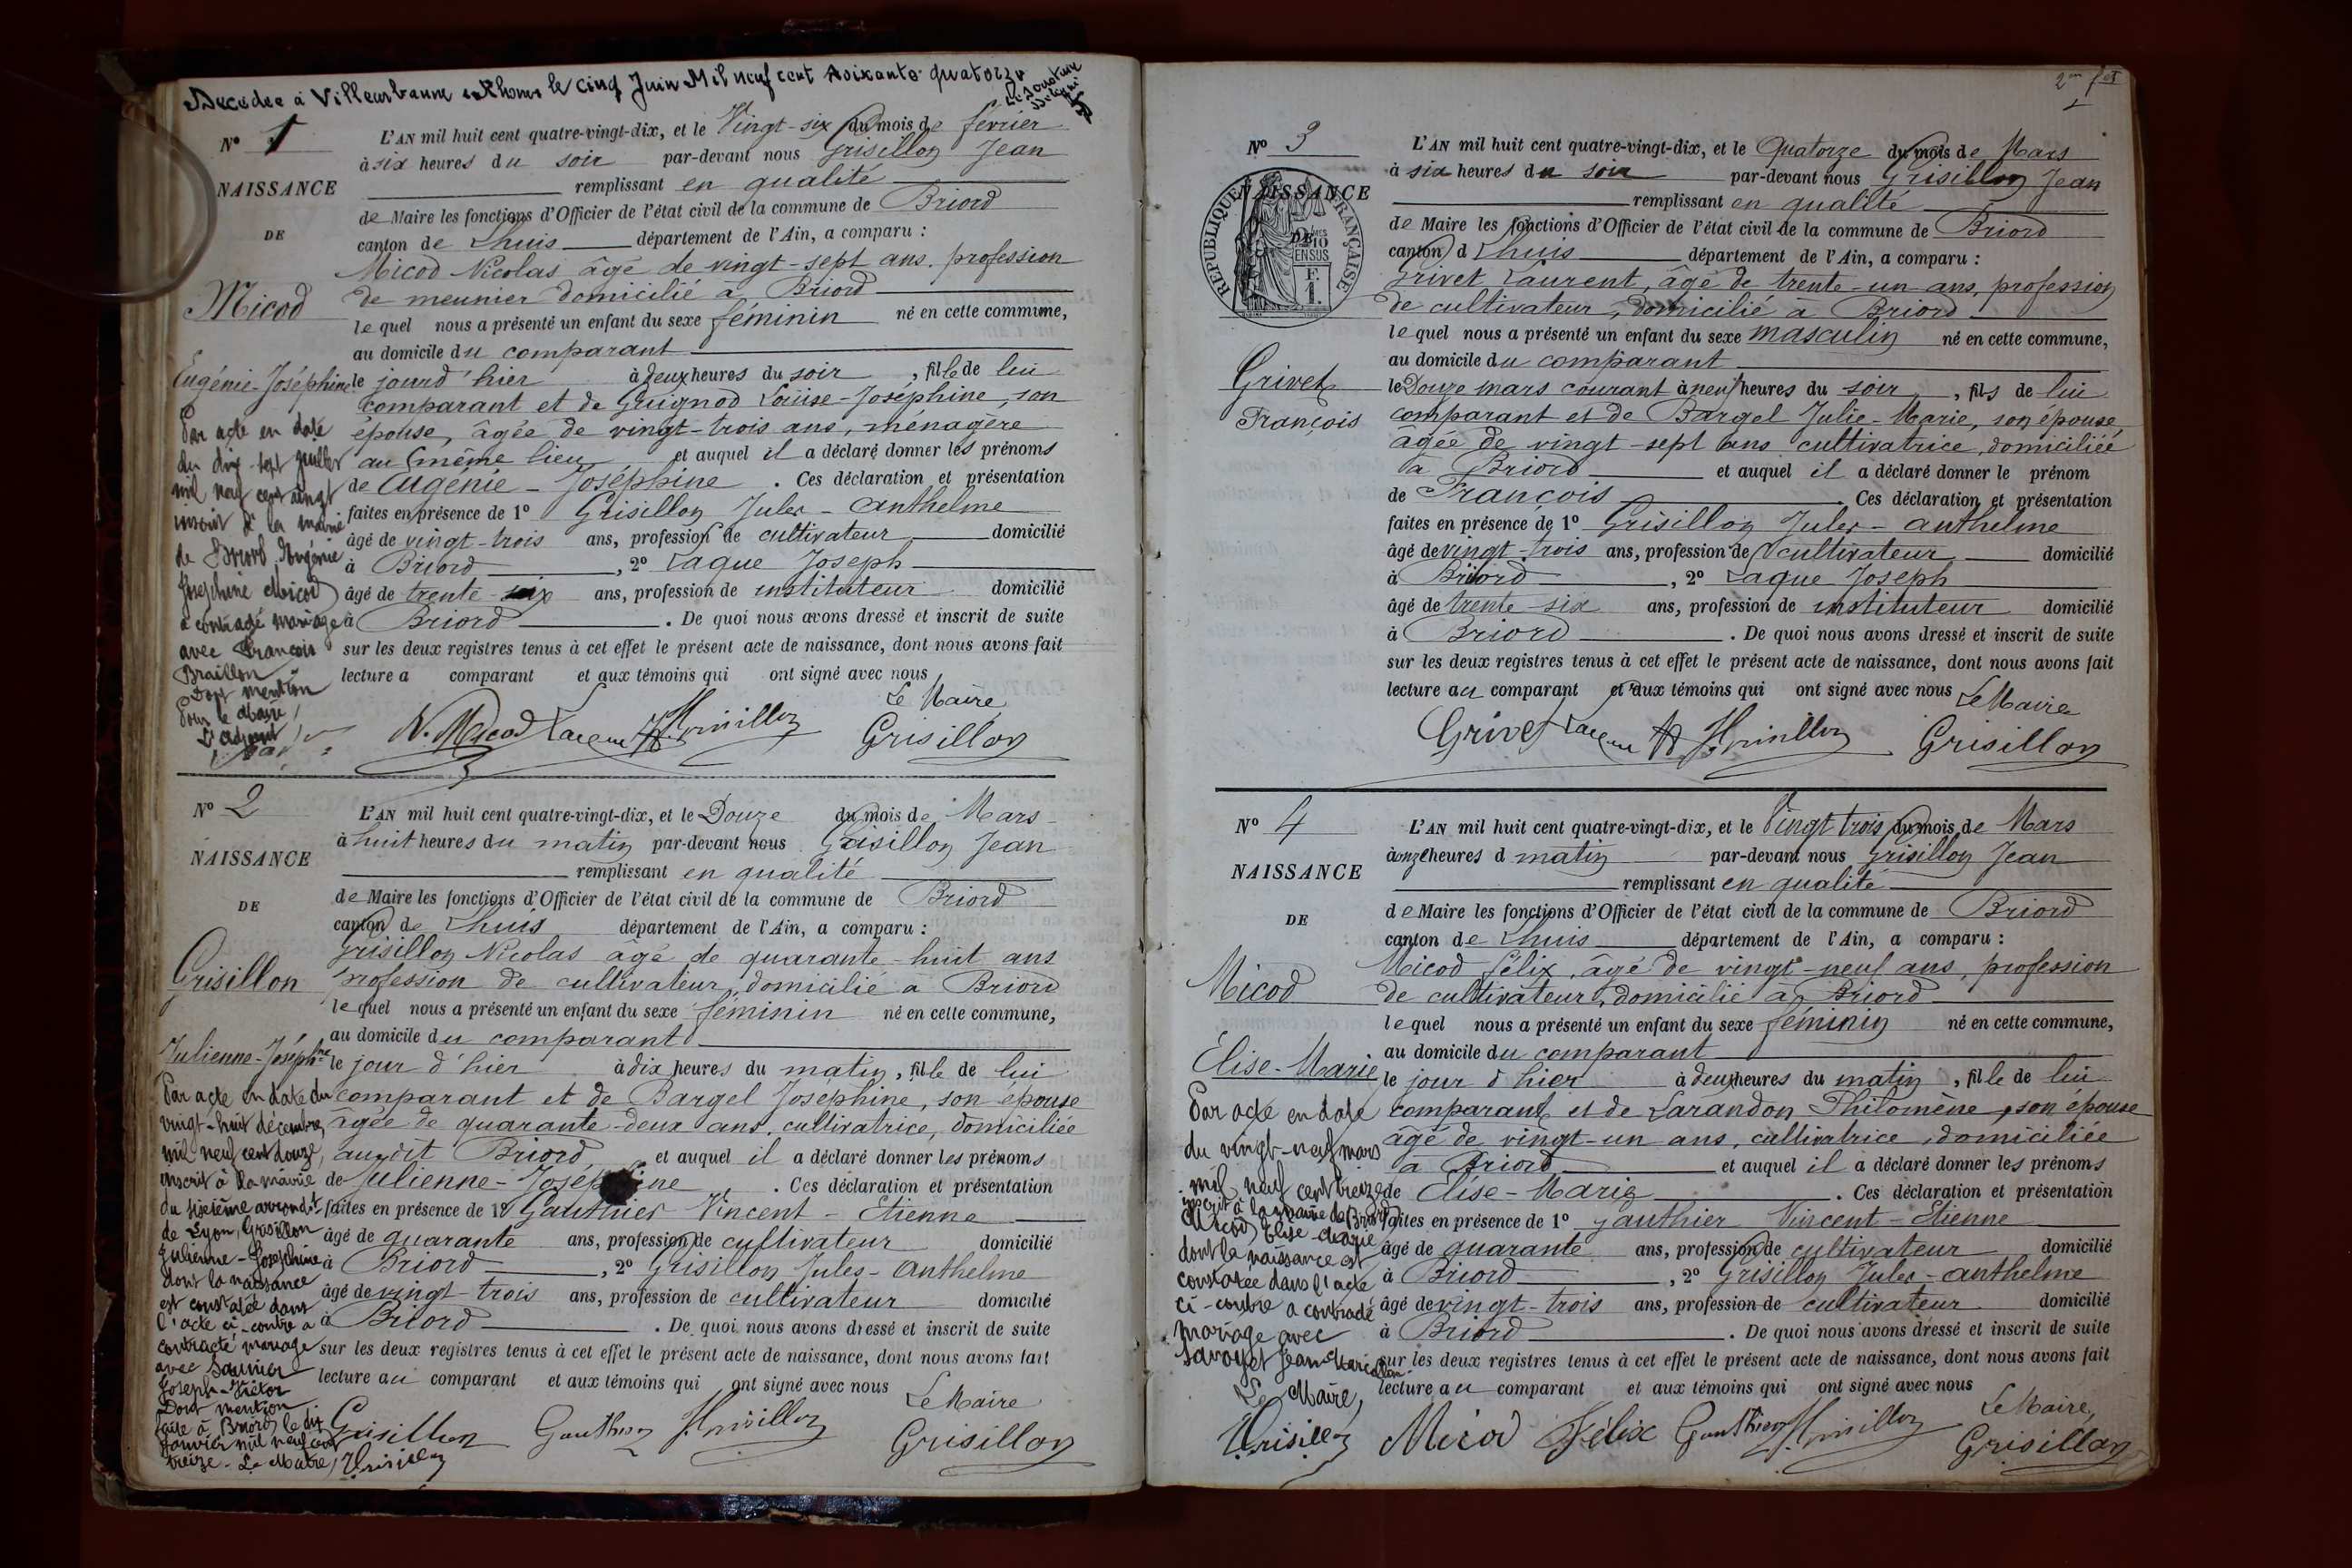 Décédée à Villeurbanne Rhône le cinq Juin Mil neuf cent soixante quatorze
N° 1
NAISSANCE
DE
Micod
Eugénie-Joséphine
Par acte en date
du dix-sept juillet
mil neuf cent vingt
inscrit à la mairie
de Briord, Eugénie
Joséphine Micod
a contracté mariage
avec François
Braillon
Dont mention
Pour le Maire,
L'adjoint
L'AN mil huit cent quatre-vingt-dix, et le Vingt-six du mois de février
à six heures du soir par-devant nous Grisillon Jean
remplissant en qualité
de Maire les fonctions d'Officier de l'état civil de la commune de Briord
canton de Lhuis département de l'Ain, a comparu :
Micod Nicolas âgé de vingt-sept ans. profession
de meunier domicilié à Briord
lequel nous a présenté un enfant du sexe féminin né en cette commune,
au domicile du comparant
le jourd'hier à deux heures du soir, fille de lui
comparant et de Guignod Louise-Joséphine, son
épouse, âgée de vingt-trois ans, ménagère
au même lieu et auquel il a déclaré donner les prénoms
de Eugénie-Joséphine. Ces déclaration et présentation
faites en présence de 1° Grisillon Jules-Anthelme
âgé de vingt-trois ans, profession de cultivateur domicilié
à Briord, 2° Laque Joseph
âgé de trente-six ans, profession de instituteur domicilié
à Briord. De quoi nous avons dressé et inscrit de suite
sur les deux registres tenus à cet effet le présent acte de naissance, dont nous avons fait
lecture a comparant et aux témoins qui ont signé avec nous
Le Maire
N. Micod Laque Grisillon Grisillon
N° 2
NAISSANCE
DE
Grisillon
Julienne-Joséphne
Par acte en date du
vingt-huit décembre,
mil neuf cent douze,
inscrit à la mairie
du sixième arrondt
de Lyon, Grisillon
Julienne-Joséphine
dont la naissance
est constatée dans
l'acte ci-contre a
contracté mariage
avec Saunier
Joseph-Victor
Dont mention
faite à Briord le dix
janvier mil neuf cent
treize - Le Maire,
Grisillon
L'AN mil huit cent quatre-vingt-dix, et le Douze du mois de Mars
à huit heures du matin par-devant nous Grisillon Jean
remplissant en qualité
de Maire les fonctions d'Officier de l'état civil de la commune de Briord
canton de Lhuis département de l'Ain, a comparu :
Grisillon Nicolas âgé de quarante-huit ans
profession de cultivateur, domicilié à Briord
lequel nous a présenté un enfant du sexe féminin né en cette commune,
au domicile du comparant
le jour d'hier à dix heures du matin, fille de lui
comparant et de Bargel Joséphine, son épouse
âgée de quarante-deux ans, cultivatrice, domiciliée
audit Briord et auquel il a déclaré donner les prénoms
de Julienne-Joséphine. Ces déclaration et présentation
faites en présence de 1° Gauthier Vincent-Etienne
âgé de quarante ans, profession de cultivateur domicilié
à Briord, 2° Grisillon Jules-Anthelme
âgé de vingt-trois ans, profession de cultivateur domicilié
à Briord. De quoi nous avons dressé et inscrit de suite
sur les deux registres tenus à cet effet le présent acte de naissance, dont nous avons fait
lecture au comparant et aux témoins qui ont signé avec nous
Le Maire
Grisillon Gauthier Grisillon Grisillon
N° 3
NAISSANCE
DE
RÉPUBLIQUE FRANÇAISE
Grivet
François
L'AN mil huit cent quatre-vingt-dix, et le Quatorze du mois de Mars
à six heures du soir par-devant nous Grisillon Jean
remplissant en qualité
de Maire les fonctions d'Officier de l'état civil de la commune de Briord
canton d Lhuis département de l'Ain, a comparu :
Grivet Laurent, âgé de trente-un ans, profession
de cultivateur, domicilié à Briord
lequel nous a présenté un enfant du sexe masculin né en cette commune,
au domicile du comparant
le Douze mars courant à neuf heures du soir, fils de lui
comparant et de Bargel Julie-Marie, son épouse,
âgée de vingt-sept ans cultivatrice, domiciliée
à Briord et auquel il a déclaré donner le prénom
de François. Ces déclaration et présentation
faites en présence de 1° Grisillon Jules-Anthelme
âgé de vingt-trois ans, profession de cultivateur domicilié
à Briord, 2° Laque Joseph
âgé de trente-six ans, profession de instituteur domicilié
à Briord. De quoi nous avons dressé et inscrit de suite
sur les deux registres tenus à cet effet le présent acte de naissance, dont nous avons fait
lecture au comparant et aux témoins qui ont signé avec nous
Le Maire
Grivet Laque Grisillon Grisillon
N° 4
NAISSANCE
DE
Micod
Elise-Marie
Par acte en date
du vingt-neuf mars
mil neuf cent treize
inscrit à la mairie de Briord
Micod Elise-Marie
dont la naissance est
constatée dans l'acte
ci-contre a contracté
mariage avec
Savoyet Jean-Marie
Le Maire,
Grisillon
L'AN mil huit cent quatre-vingt-dix, et le Vingt trois du mois de Mars
à onze heures d matin par-devant nous Grisillon Jean
remplissant en qualité
de Maire les fonctions d'Officier de l'état civil de la commune de Briord
canton de Lhuis département de l'Ain, a comparu :
Micod Félix, âgé de vingt-neuf ans, profession
de cultivateur, domicilié à Briord
lequel nous a présenté un enfant du sexe féminin né en cette commune,
au domicile du comparant
le jour d'hier à deux heures du matin, fille de lui
comparant et de Larandon Philomène, son épouse
âgé de vingt-un ans, cultivatrice, domiciliée
à Briord et auquel il a déclaré donner les prénoms
de Elise-Marie. Ces déclaration et présentation
faites en présence de 1° Gauthier Vincent-Etienne
âgé de quarante ans, profession de cultivateur domicilié
à Briord, 2° Grisillon Jules-Anthelme
âgé de vingt-trois ans, profession de cultivateur domicilié
à Briord. De quoi nous avons dressé et inscrit de suite
sur les deux registres tenus à cet effet le présent acte de naissance, dont nous avons fait
lecture au comparant et aux témoins qui ont signé avec nous
Le Maire,
Micod Félix Gauthier Grisillon Grisillon